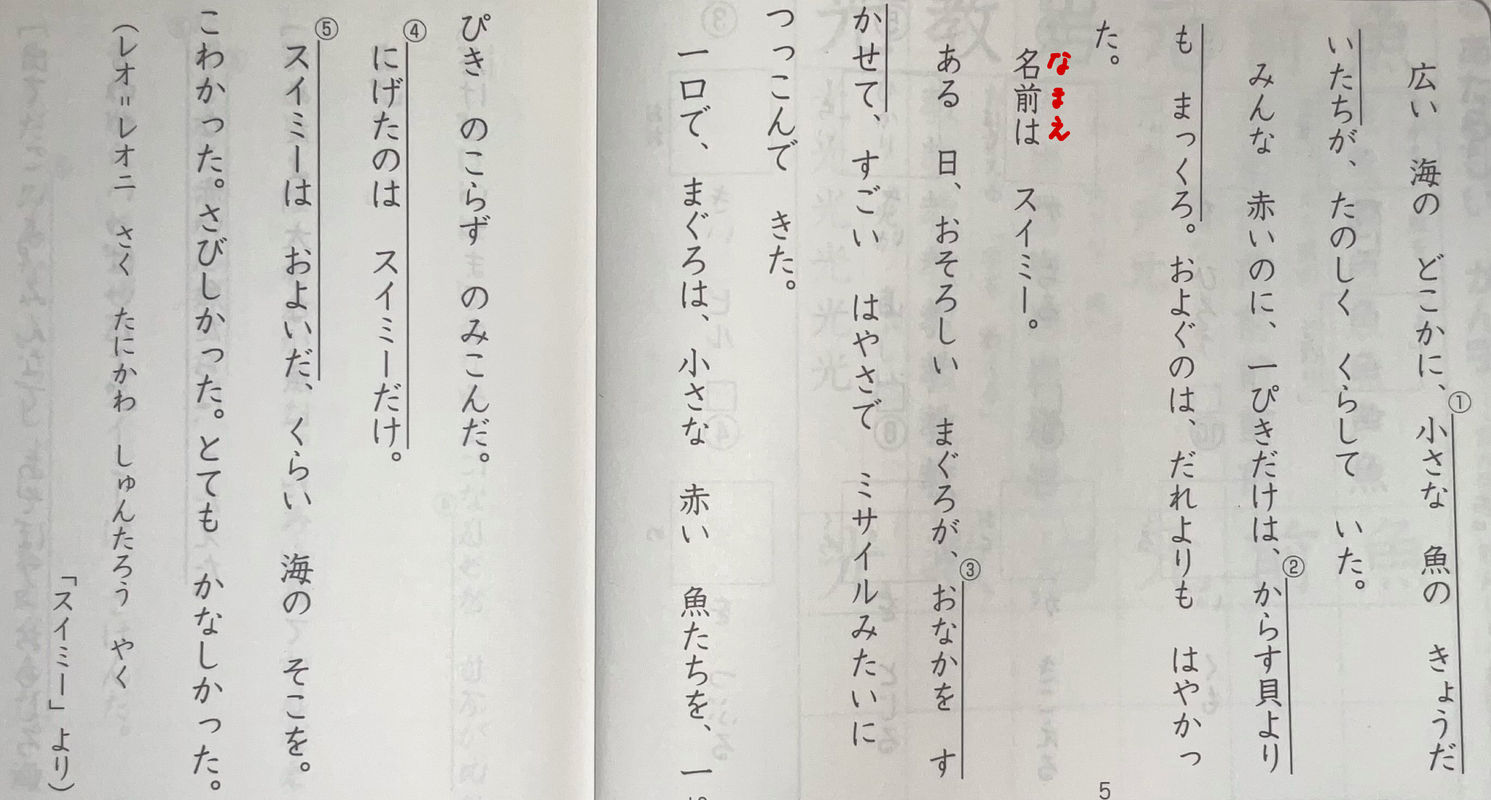 広い 海の どこかに、①小さな 魚の きょうだ
いたちが、たのしく くらして いた。
みんな 赤いのに、一ぴきだけは、②からす貝より
も まっくろ。およぐのは、だれよりも はやかっ
た。
なまえ
名前は スイミー。
ある 日、おそろしい まぐろが、③おなかを す
かせて、すごい はやさで ミサイルみたいに
つっこんで きた。
一口で、まぐろは、小さな 赤い 魚たちを、一
ぴき のこらず のみこんだ。
④にげたのは スイミーだけ。
⑤スイミーは およいだ、くらい 海の そこを。
こわかった。さびしかった。とても かなしかった。
(レオ=レオニ さく たにかわ しゅんたろう やく
「スイミー」より)
5